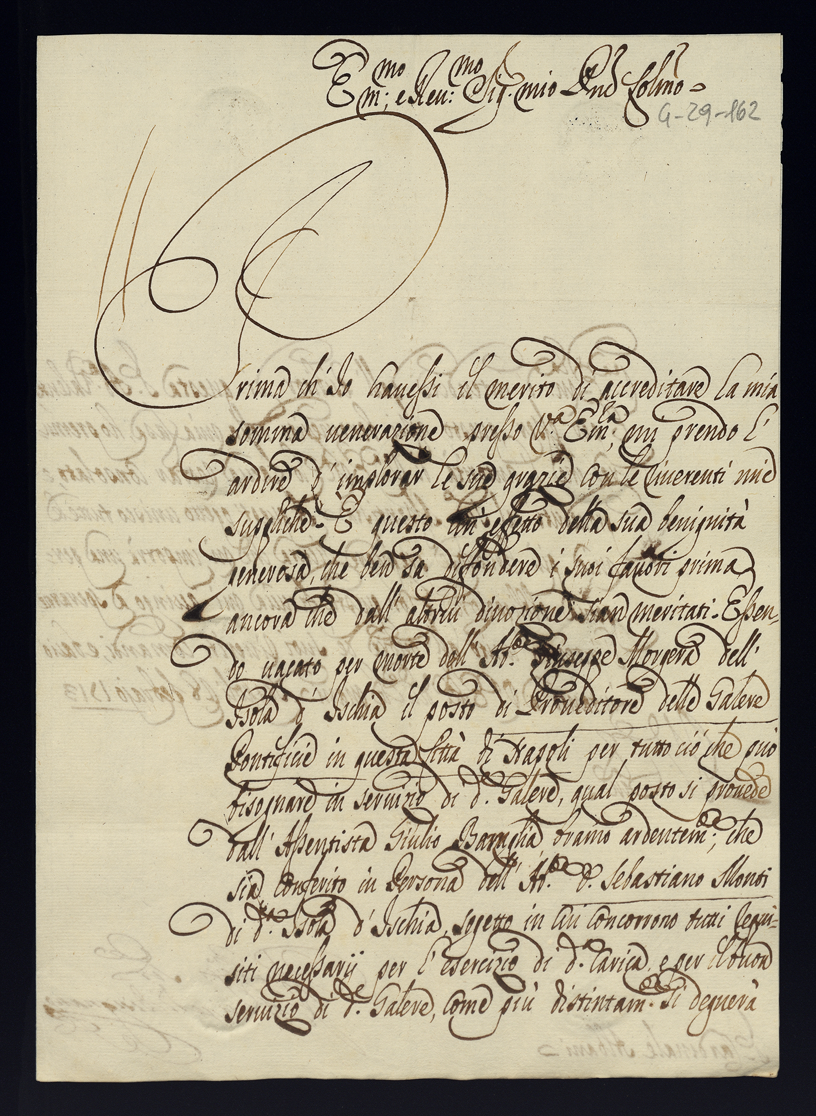 Em:mo e Reu:mo Sig.r mio Pnē Colmo
G-29-162
Prima ch' Io havessi il merito di accreditare la mia
somma uenerazione presso V.a Em:za, mi prendo l'
ardire d' implorar le sue grazie con le riuerenti mie
suppliche. È questo un' effetto della sua benignità
generosa, che ben sa diffondere i suoi fauori prima
ancora che dall' altrui diuozione sian meritati. Essen,
do uacato per morte dell' Giuseppe Morgera dell'
Isola d' Ischia il posto di Proueditore delle Galere
Pontificie in questa Città di Napoli per tutto ciò che può
bisognare in seruizio di d.e Galere, qual posto si prouede
dall' Assentista Giulio bramo ardentem.te, che
sia conferito in Persona dell' D. Sebastiano Monti
di d.a Isola d' Ischia, sogetto in cui concorrono tutti requi-
siti necessarij per l' esercizio di d.a Carica, e per il buon
seruizio di d.e Galere, come più distintam.te si degnerà
Cardinale Albani